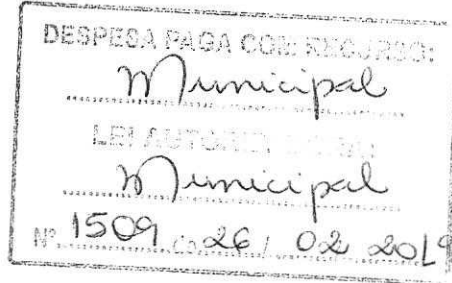 DESPESA PAGA COM RECURSO:
Municipal
LEI AUTORIZ
Municipal
Nº 1509 de 26 / 02 2019